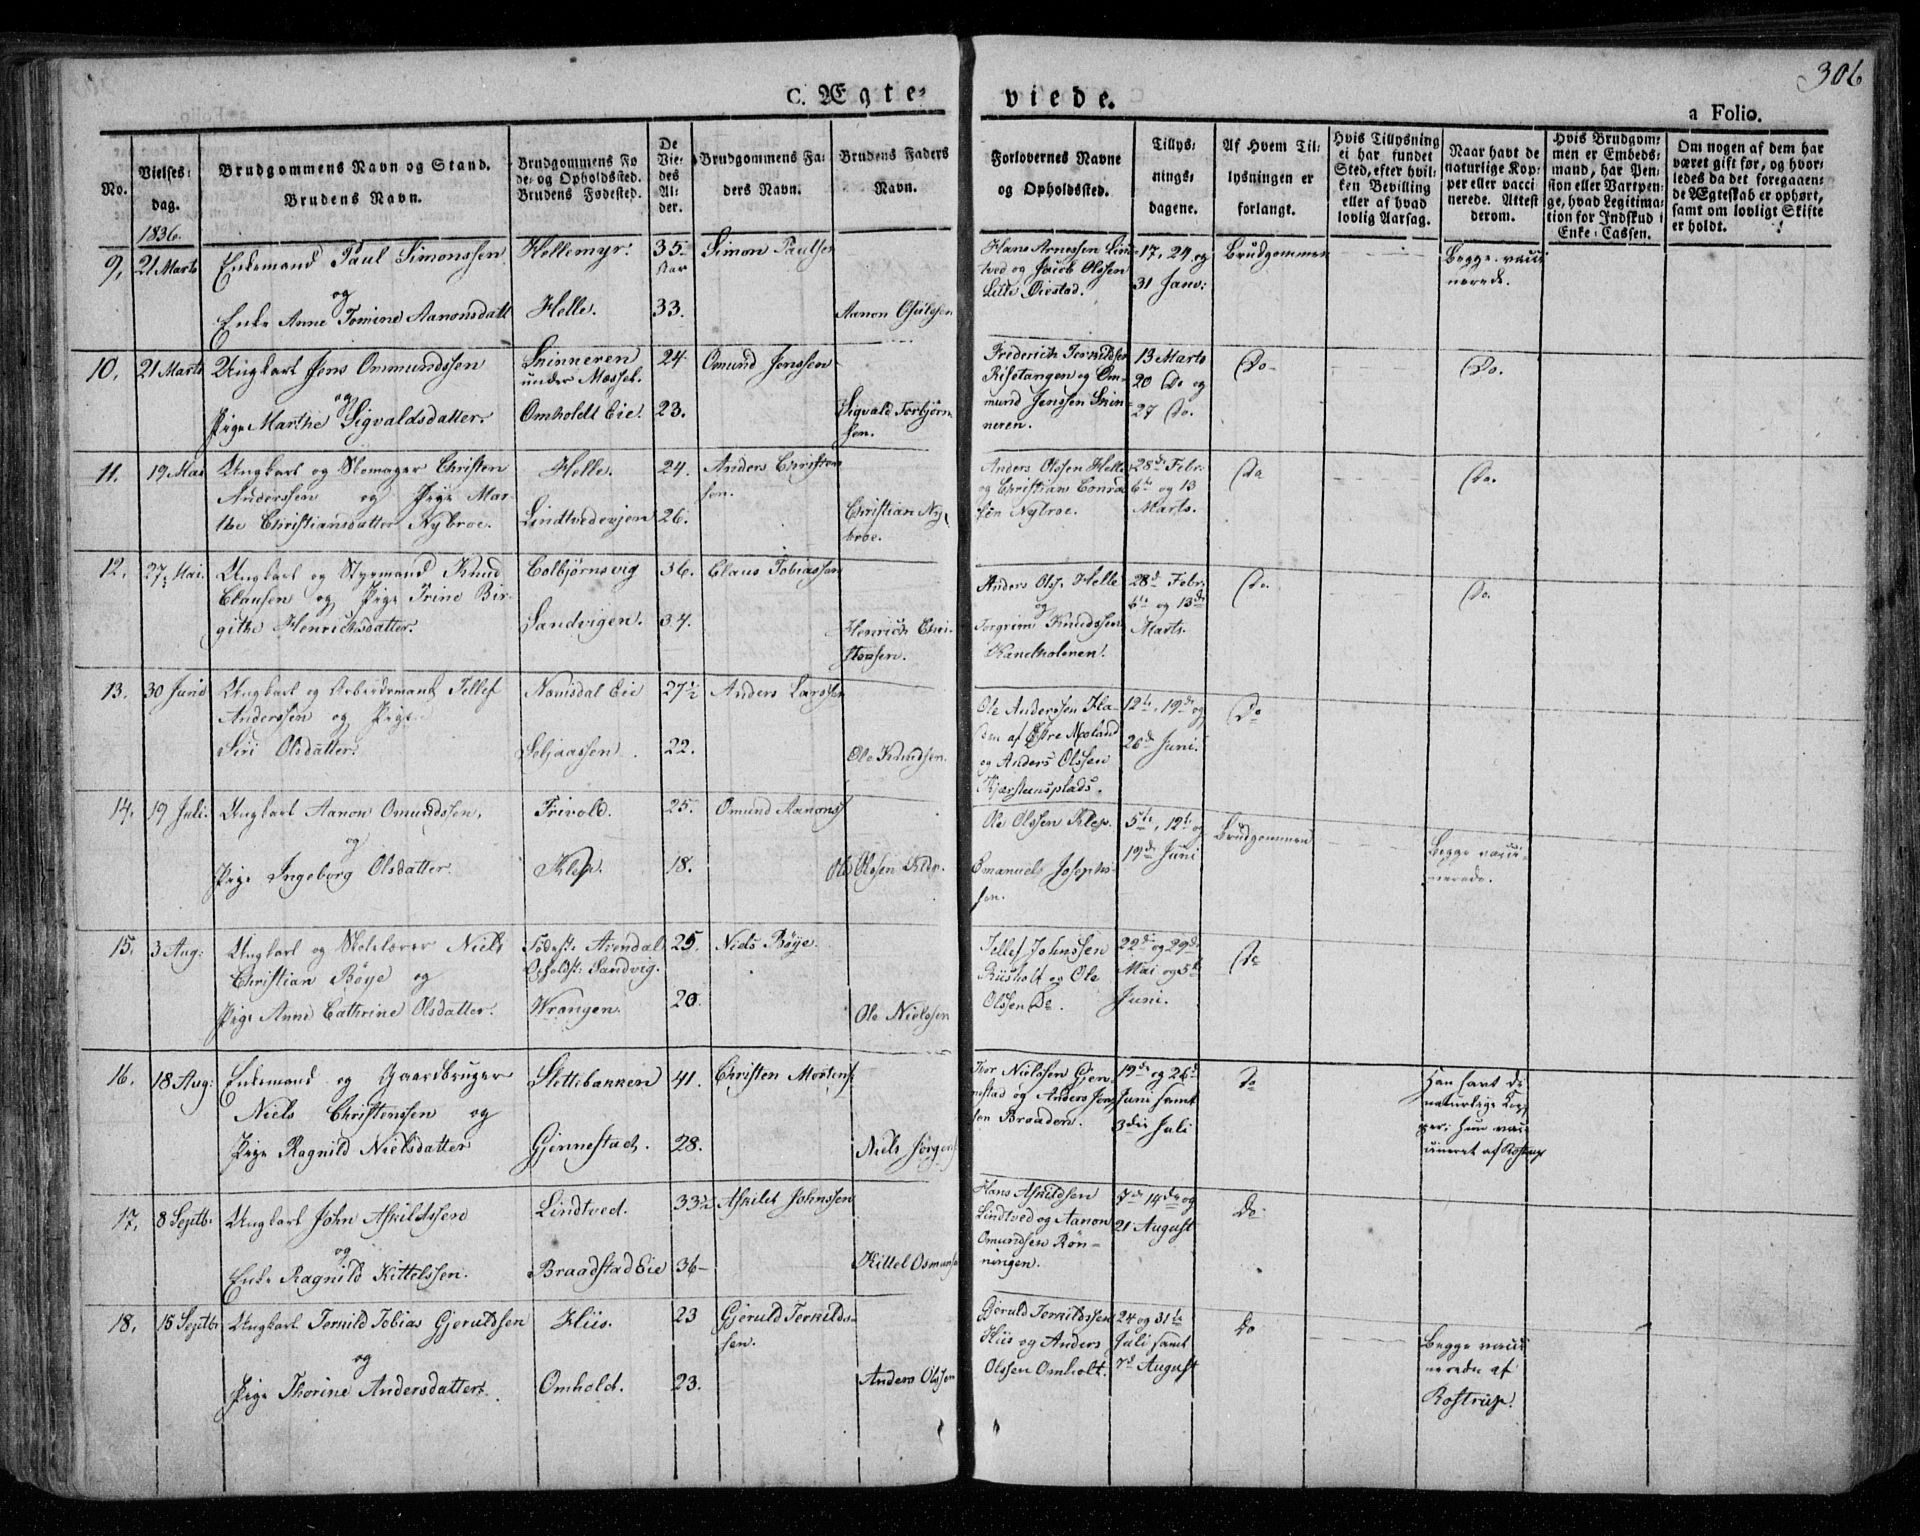 306
C. Ægte-
viede.
a Folio.
No.
Vielses-
dag.
1836.
Brudgommens Navn og Stand.
Brudens Navn.
Brudgommens Fø
de- og Opholdssted.
Brudens Fødested.
De
Vie-
des
Al-
der.
Brudgommens Fa-
ders Navn.
Brudens Faders
Navn.
Forlovernes Navne
og Opholdssted.
Tillys-
nings-
dagene.
Af Hvem Til-
lysningen er
forlangt.
Hvis Tillysning
ei har fundet
Sted, efter hvil-
ken Bevilling
eller af hvad
lovlig Aarsag.
Naar havt de
naturlige Kop-
per eller vacci
nerede. Attest
derom.
Hvis Brudgom-
men er Embeds-
mand, har Pen-
sion eller Vartpen-
ge, hvad Legitima-
tion for Indskud i
Enke-Cassen.
Om nogen af dem har
været gift før, og hvor-
ledes da det foregaaen-
de Ægteskab er ophørt,
samt om lovligt Skifte
er holdt.
9, 21 Marts
Enkemand Paul Simonssen
og
Enke Anne Tomine Aanonsdatt
Hellemyr:
Helle.
35-
aar
33.
Simon Paulsen
Aanon
Hans Arnessen Lin
tved og Jacob Olssen
Lille Øiestad.
17, 24 og
31 Janv:
Brudgommen
Begge vacci
nerede.
10. 21 Marts
Ungkarl Jens Ommundssen
og
Pige Marthe Sigvaldsdatter.
Skinneren
under Messel.
Omholdt Eie.
24
23.
Omund Jenssen
Sigvald Torbjørn
sen.
Frederich Terkildsen
Risetangen og Om-
mund Jenssen Skin-
neren.
13 Marts
20 Do og
27 Do.
Do
Do.
11. 19 Mai
Ungkarl og Skomager Christen
Anderssen og Pige Mar-
the Christiansdatter Nybroe.
Helle.
Lindtvedveien
24.
26.
Anders Christen
sen.
Christian Ny-
broe.
Anders Olssen Helle
og Christian Conrad
sen Nybroe.
28de Febr.
6te og 13
Marts.
Do
Do.
12. 27: Mai.
Ungkarl og Styrmand Knud
Clausen og Pige Trine Bir-
githe Henrichsdatter.
Colbjørnsvig
Sandvigen.
36.
34.
Claus Tobiassen
Henrich Chri-
stensen.
Anders Olss. Helle
og
Torgrim Knudssen
28de Febr.
6te og 13de
Marts.
Do.
Do.
13. 30 Juni
Ungkarl og Arbeidsmand Tellef
Anderssen og Pige
Siri Olsdatter.
Navisdal Eie
Seljaassen
27½
22.
Anders Larssen
Ole Knudsen.
Ole Anderssen Fla-
den af Østre Moland
og Anders Olssen
Kjærsteensplads.
12te, 19de og
26de Juni.
Do
14. 19 Juli.
Ungkarl Aanon Omundssen,
og
Pige Ingeborg Olsdatter.
Trivold.
Klep.
25.
18.
Omund Aanons
Ole Olssen Klep.
Ole Olssen Klep.
Emanuels Josephs-
sen.
5te, 12te og
19de Juni
Brudgommen
Begge vacci-
nerede.
15. 3 Aug:
Ungkarl og Skolelærer Niels
Christian Böye og
Pige Anne Cathrine Olsdatter.
Födest: Arendal
Opholdst: Sandvig.
Wrangen.
25.
20.
Niels Böye.
Ole Nielssen
Tellef Johnssen
Biisholt og Ole
Olssen Do.
22de og 29de
Mai og 5te
Juni.
Do
16. 18 Aug:
Enkemand og Gaardbruger
Niels Christenssen og
Pige Ragnild Nielsdatter
Slettebakken
Gjennestad.
41.
28.
Christen Mortens
Niels Jörgens
Thor Nielssen Gjen
nestad og Anders Jens
sen Braaden.
19de og 26de
Juni samt
3die Juli
Do
Han havt de
naturlige Kop
per; hun vac
cineret af Rostrup
17. 8 Septb:
Ungkarl John Askildssen
og
Enke Ragnild Kittelssen.
Lindtved.
Braadstad Eie
33½
36-
Askild Johnssen
Kittel Osmunds
Hans Askildsen
Lindtved og Aanon
Omundsen Røn-
ningen.
7de 14de og
21 August
Do.
18. 15 Septb:
Ungkarl Terkild Tobias Gjeruldsen
og
Pige Thorine Andersdatter.
Hiis.
Omhold.
23
23.
Gjeruld Terkilds-
sen.
Anders Olssen
Gjeruld Terkildssen
Hiis og Anders
Olssen Omholt.
24 og 31te
Juli samt
7de August
Do
Begge vacci
nerede af
Rostrup.